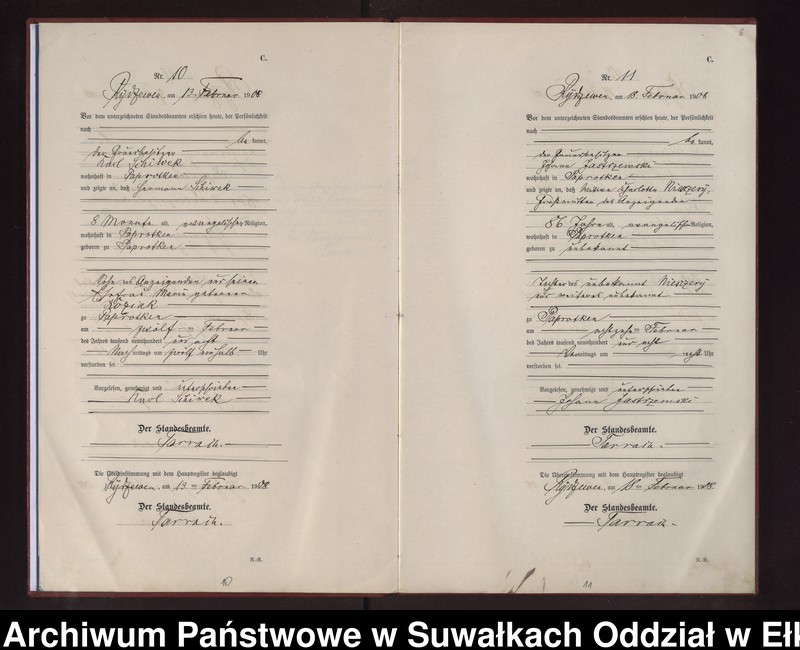 C.
Nr. 10
Rydzewen am 13 Februar 1908
Vor dem unterzeichneten Standesbeamten erschien heute, der Persönlichkeit
nach
be kannt,
der
Karl Schiwek
wohnhaft in Paprotken
und zeigte an, daß Hermann Schiwek
8 Monate alt, evangelischer Religion,
wohnhaft in Paprotken
geboren zu Paprotken
Sohn des Anzeigenden und seiner
Ehefrau Marie geborenen
Koziak
zu Paprotken
am zwölf ten Februar
des Jahres tausend neunhundert und acht
Nachmittags um Uhr
verstorben sei.
Vorgelesen, genehmigt und unterschrieben
Karl Schiwek
Der Standesbeamte.
Sarrach.
Die Übereinstimmung mit dem Hauptregister beglaubigt
Rydzewen am 13 ten Februar 1908
Der Standesbeamte.
Sarrach.
K.-R.
10
C.
Nr. 11
Rydzewen am 18 Februar 1908
Vor dem unterzeichneten Standesbeamten erschien heute, der Persönlichkeit
nach
be kannt,
der
Johann Jastrzemski
wohnhaft in Paprotken
und zeigte an, daß Charlotte Nieszery,
Großmutter des Anzeigenden
86 Jahre alt, evangelischer Religion,
wohnhaft in Paprotken
geboren zu unbekannt
Tochter des unbekannt Nieszery
und weiteres unbekannt
zu Paprotken
am achtzehn ten Februar
des Jahres tausend neunhundert und acht
Vormittags um acht Uhr
verstorben sei.
Vorgelesen, genehmigt und unterschrieben
Johann Jastrzemski
Der Standesbeamte.
Sarrach.
Die Übereinstimmung mit dem Hauptregister beglaubigt
Rydzewen am 18 ten Februar 1908
Der Standesbeamte.
Sarrach.
K.-R.
11
Archiwum Państwowe w Suwałkach Oddział w Ełk